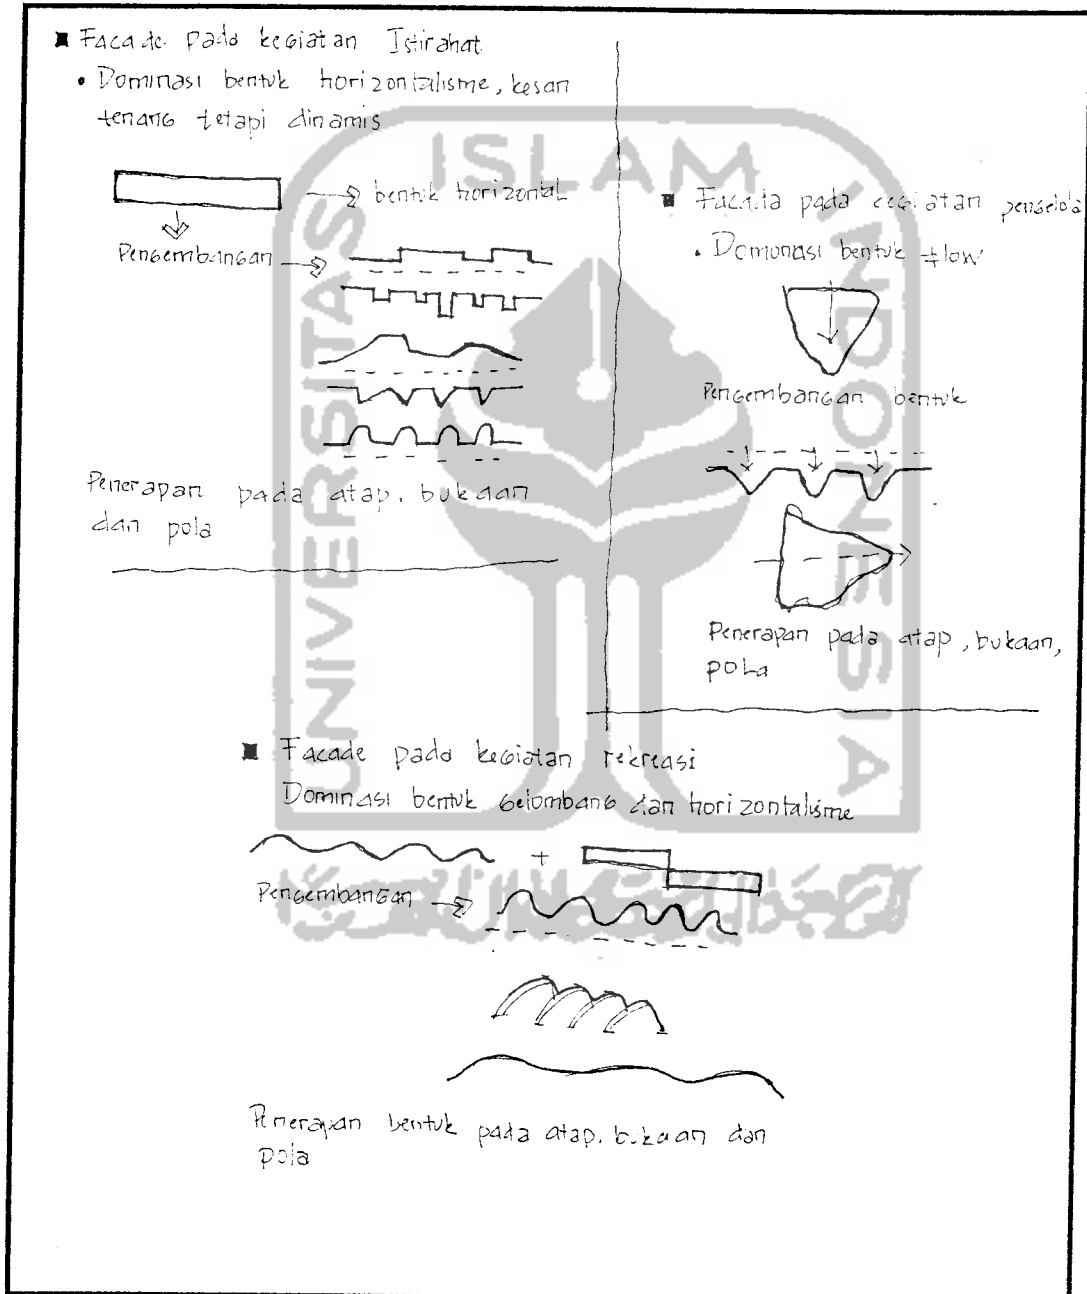 ■ Facade pada kegiatan Istirahat
• Dominasi bentuk horizontalisme, kesan
tenang tetapi dinamis
bentuk horizontal
Pengembangan
Penerapan pada atap, bukaan
dan pola
■ Facada pada kegiatan pengelola
• Domonasi bentuk flow
Pengembangan bentuk
Penerapan pada atap, bukaan,
pola
■ Facade pada kegiatan rekreasi
Dominasi bentuk gelombang dan horizontalisme
+
Pengembangan
Penerapan bentuk pada atap, bukaan dan
pola
UNIVERSITAS
ISLAM
INDONESIA